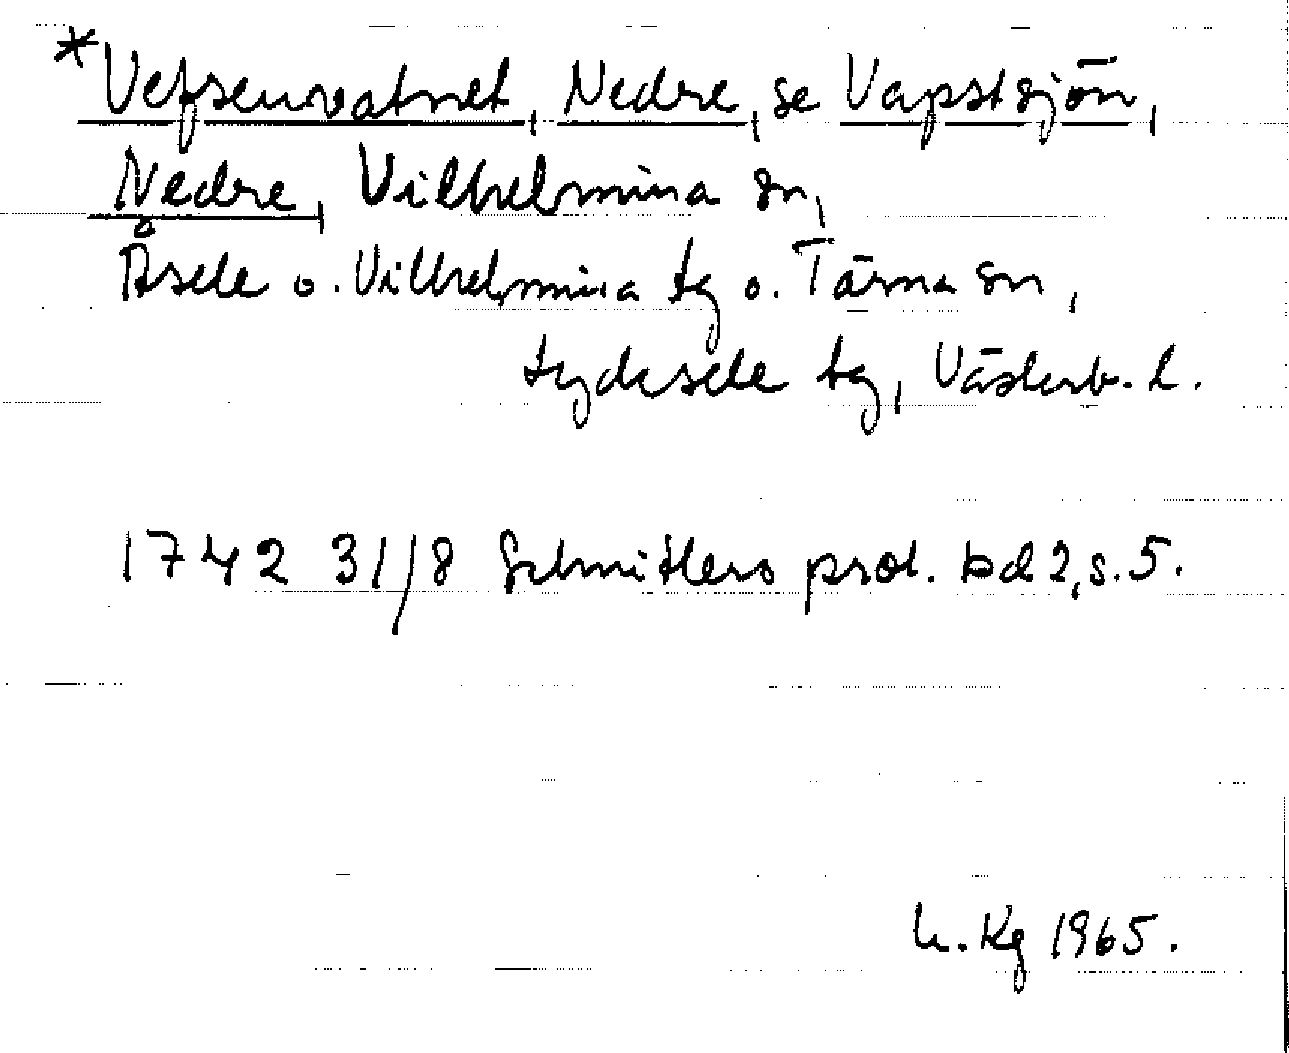 *Vefsenvatnet, Nedre, se Vapstsjön,
Nedre, Vilhelmina sn,
Åsele o. Vilhelmina tg o. Tärna sn,
Lycksele tg, Västerb. l.
1742 31/8 Schnitlers prot. bd 2, s. 5.
h. Kg 1965.